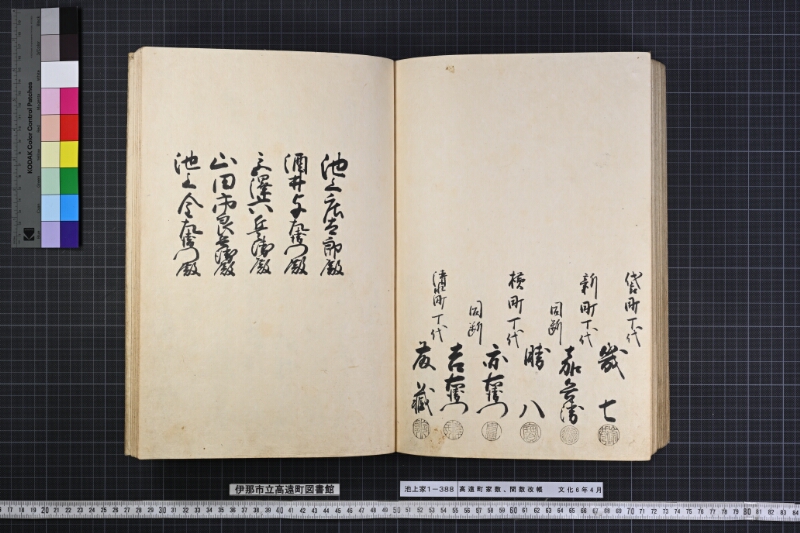 袋町丁代
幾七
新町丁代
嘉兵衛
同断
勝八
横町丁代
亦右衛門
同断
吉右衛門
清水町丁代
藤蔵
池上庄太郎殿
酒井与左衛門殿
黒澤六兵衛殿
山田市良兵衛殿
池上金右衛門殿
KODAK Color Control Patches
伊那市立高遠町図書館
池上家1-388 高遠町家数、間数改帳 文化6年4月